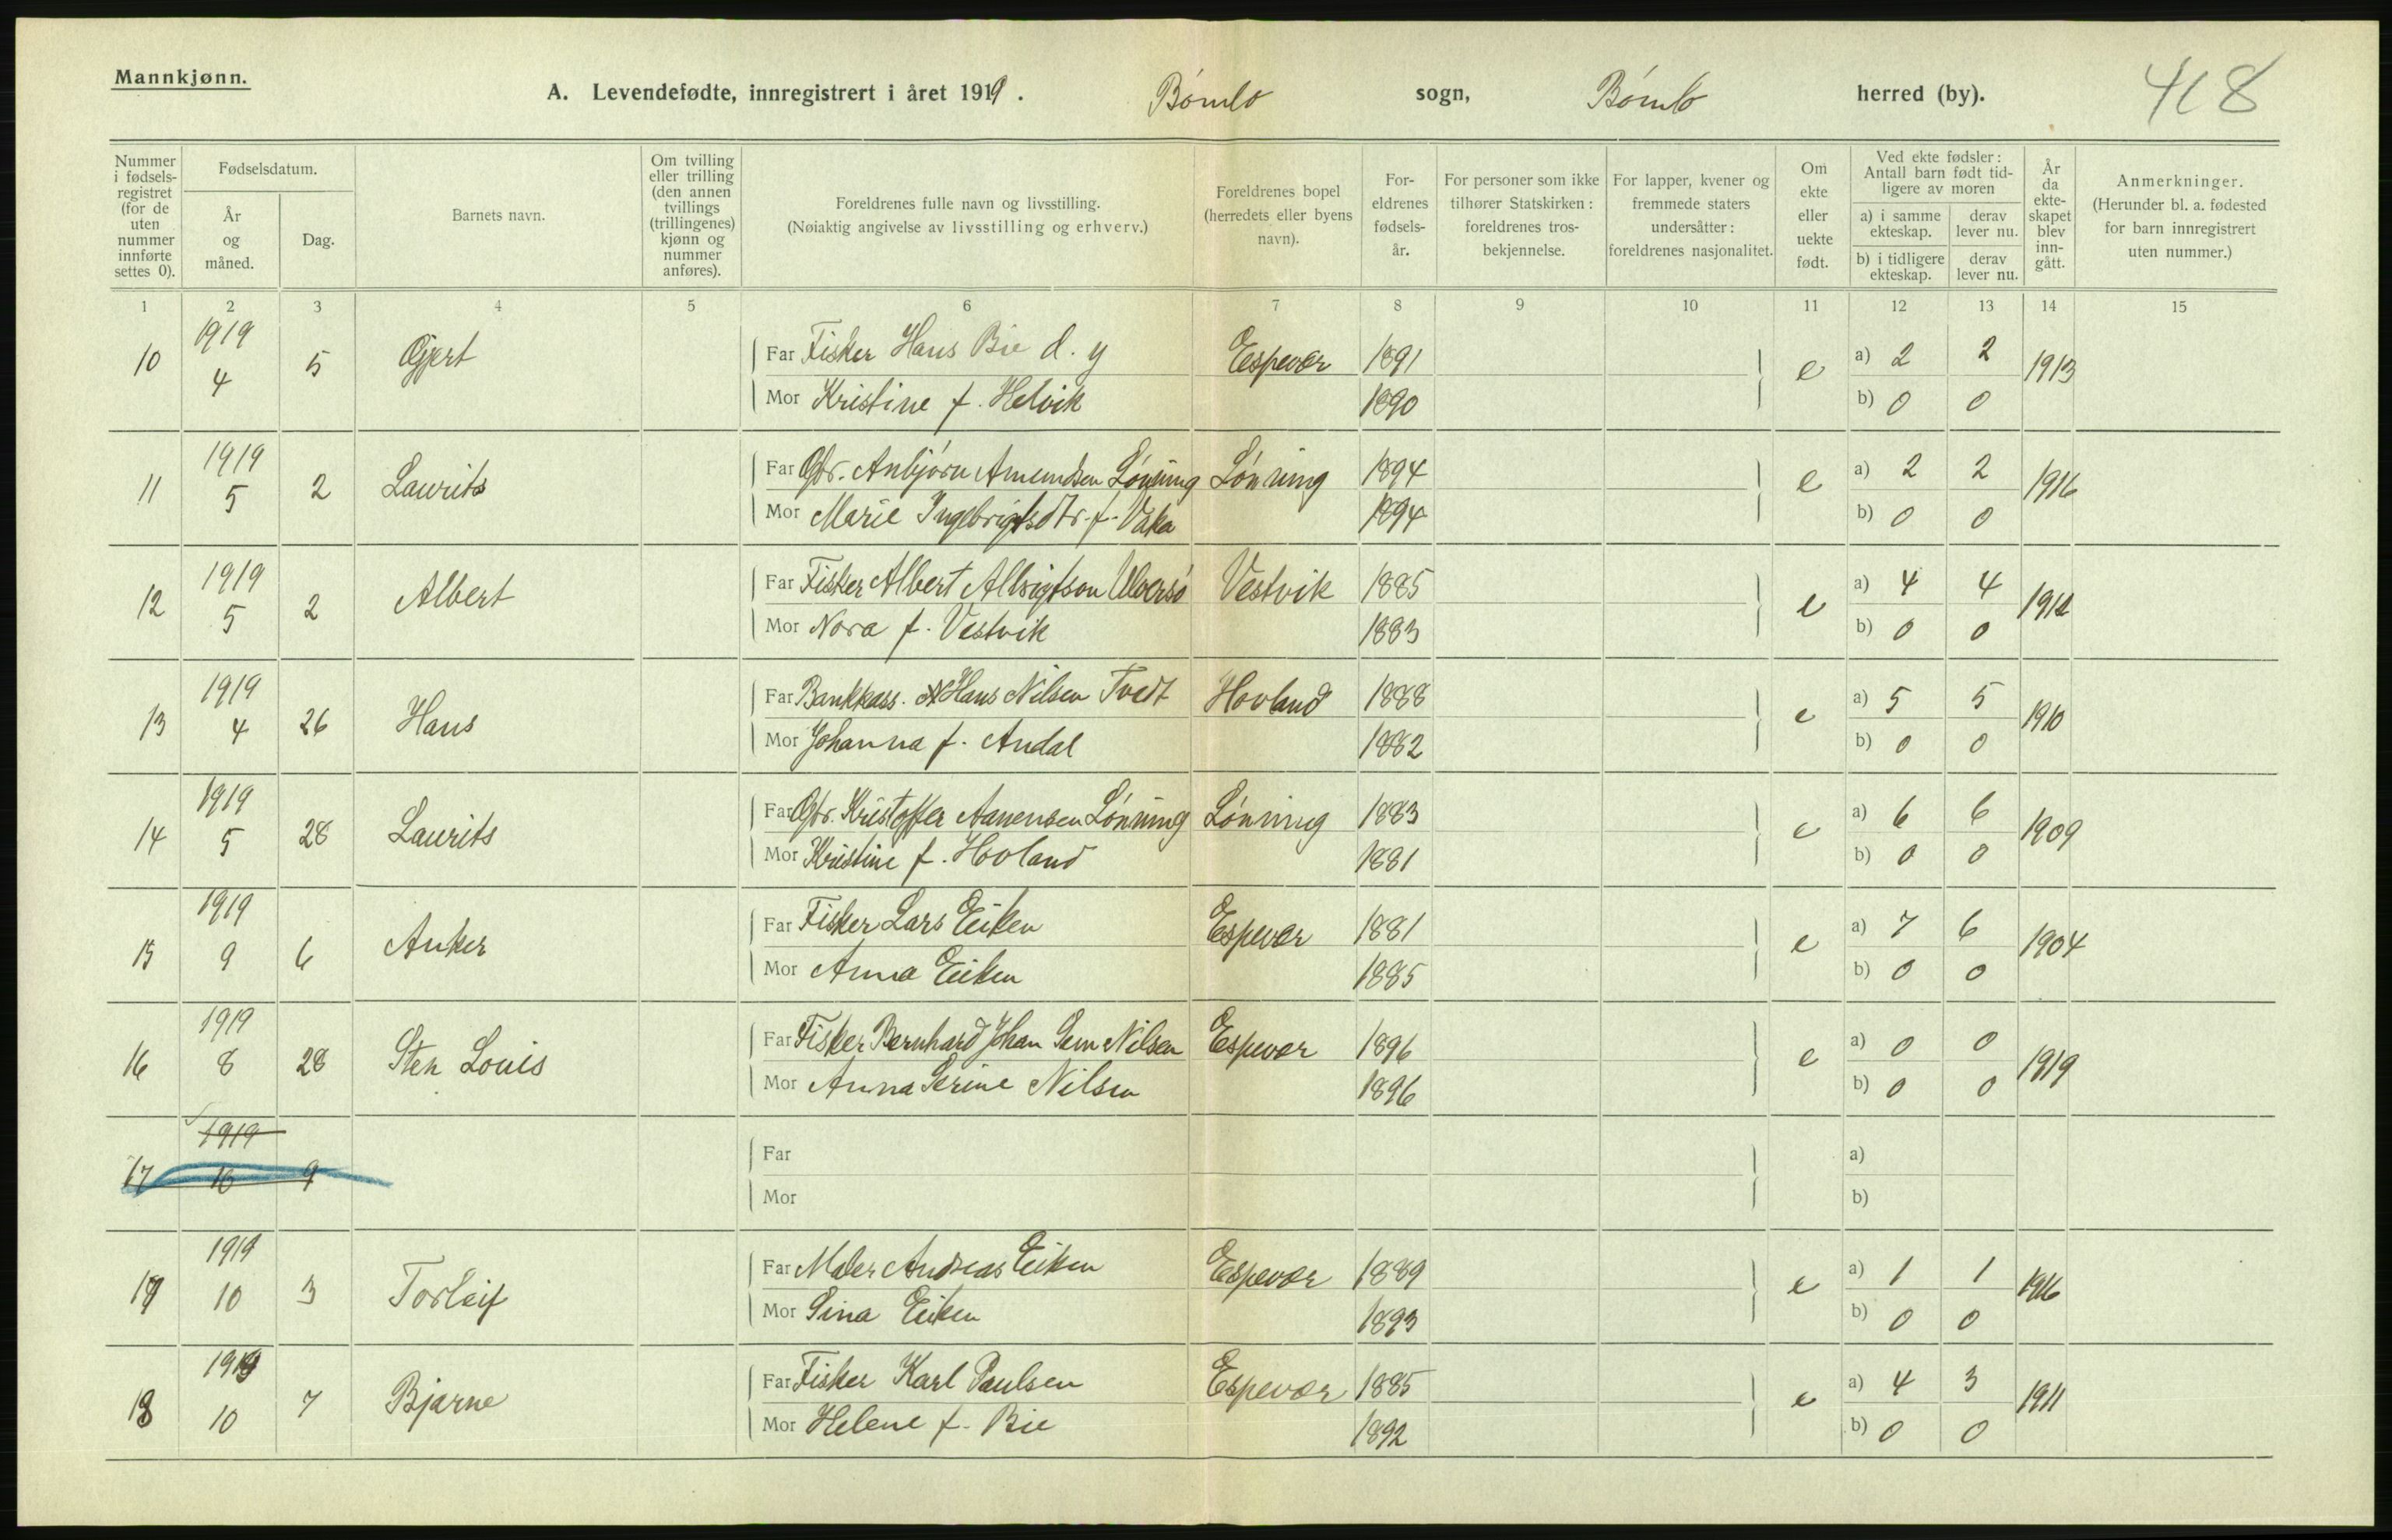 Mannkjønn.
A. Levendefødte, innregistrert i året 1919. Bömlo sogn, Bömlo herred (by). 418
Nummer i fødsels-registret (for de uten nummer innførte settes 0).
Fødselsdatum.
År og måned.
Dag.
Barnets navn.
Om tvilling eller trilling (den annen tvillings (trillingenes) kjønn og nummer anføres).
Foreldrenes fulle navn og livsstilling.
(Nøiaktig angivelse av livsstilling og erhverv.)
Foreldrenes bopel (herredets eller byens navn).
For-eldrenes fødsels-år.
For personer som ikke tilhører Statskirken: foreldrenes tros-bekjennelse.
For lapper, kvener og fremmede staters undersåtter: foreldrenes nasjonalitet.
Om ekte eller uekte født.
Ved ekte fødsler: Antall barn født tid-ligere av moren
a) i samme ekteskap.
derav lever nu.
b) i tidligere ekteskap.
derav lever nu.
År da ekte-skapet blev inn-gått.
Anmerkninger.
(Herunder bl. a. fødested for barn innregistrert uten nummer.)
1 2 3 4 5 6 7 8 9 10 11 12 13 14 15
10 1919 4 5 Gjert Far Fisker Hans Bie d. y Espevær 1891 e a) 2 2 1913
Mor Kristine f. Helvik 1890 b) 0 0
11 1919 5 2 Laurits Far Gbr. Anbjörn Amundsen Lönning Lönning 1894 e a) 2 2 1916
Mor Marie Ingebrigtsdtr. f. Vaka 1894 b) 0 0
12 1919 5 2 Albert Far Fisker Albert Ulversö Vestvik 1885 e a) 4 4
Mor Nora f. Vestvik 1883 b) 0 0
13 1919 4 26 Hans Far Bankkass. Hans Nilsen Tvedt Hovland 1888 e a) 5 5 1910
Mor Johanna f. Andal 1882 b) 0 0
14 1919 5 28 Laurits Far Gbr. Kristoffer Aanensen Lönning Lönning 1883 e a) 6 6 1909
Mor Kristine f. Hovland 1881 b) 0 0
15 1919 9 6 Anker Far Fisker Lars Eiken Espevær 1881 e a) 7 6 1904
Mor Anna Eiken 1885 b) 0 0
16 1919 8 28 Sten Louis Far Fisker Bernhard Johan Sem Nilsen Espevær 1896 e a) 0 0 1919
Mor Anna Serine Nilsen 1896 b) 0 0
17 1919 10 9 Far a)
Mor b)
1919 10 3 Torleif Far Maler Andreas Eiken Espevær 1889 e a) 1 1 1916
Mor Sina Eiken 1893 b) 0 0
18 1919 10 7 Bjarne Far Fisker Karl Paulsen Espevær 1885 e a) 4 3 1911
Mor Helene f. Bie 1892 b) 0 0